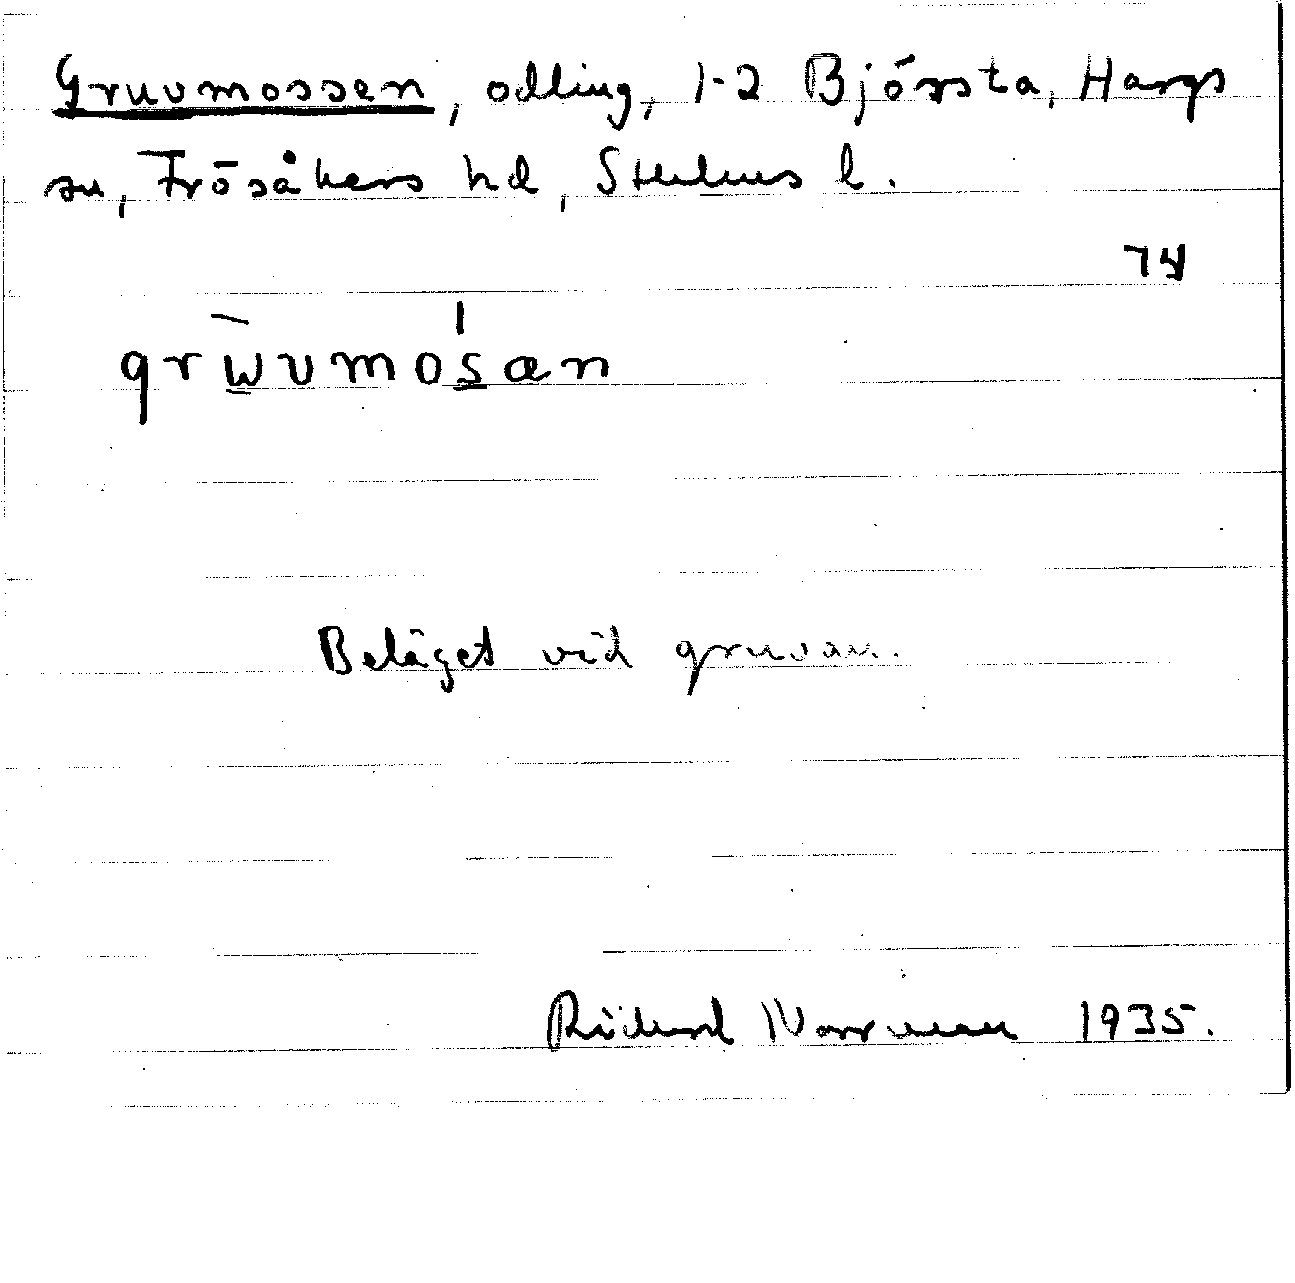 Gruvmossen, odling, 1-2 Björsta, Hargs
sn, Frösåkers hd, Sthlms l.
74
grwvmosæn
Beläget vid gruvan.
Rickard Norrman 1935.